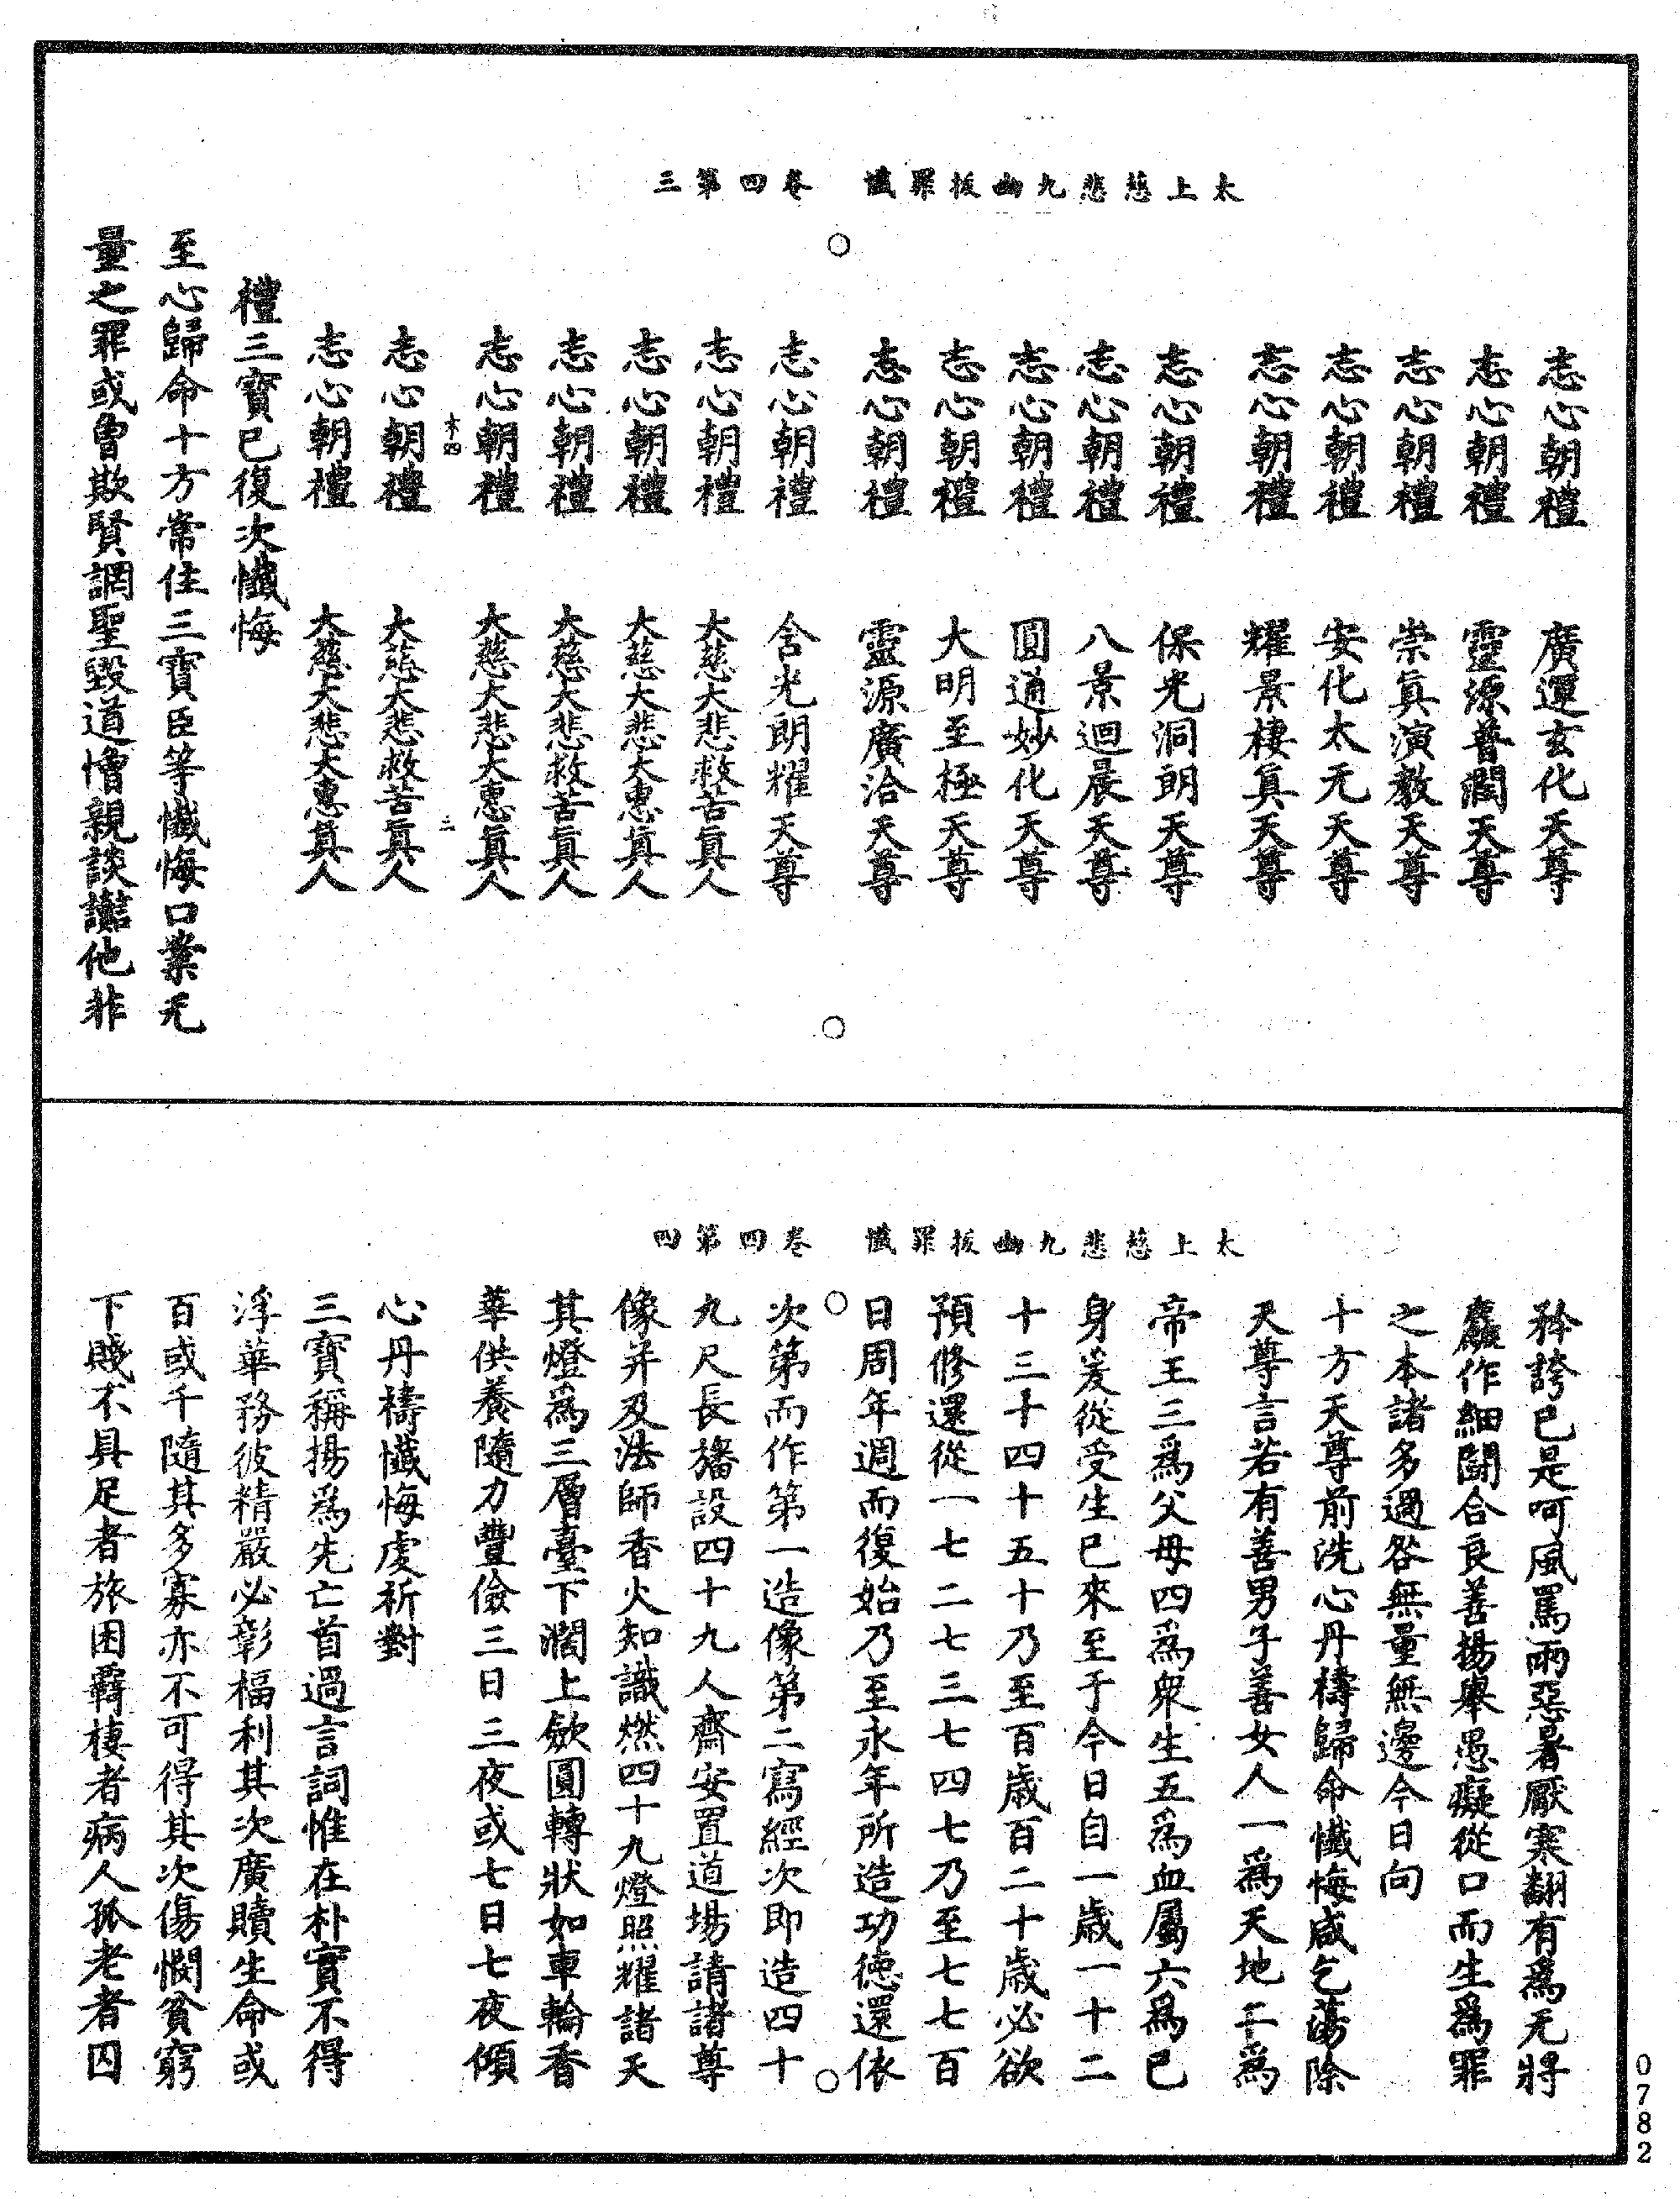 太上慈悲九幽拔罪懺　卷四第三
志心朝禮　廣運玄化天尊
志心朝禮　靈源普潤天尊
志心朝禮　崇真演教天尊
志心朝禮　安化太无天尊
志心朝禮　耀景棲真天尊
志心朝禮　保光洞朗天尊
志心朝禮　八景迴晨天尊
志心朝禮　圓通妙化天尊
志心朝禮　大明至極天尊
志心朝禮　靈源廣洽天尊
志心朝禮　含光朗耀天尊
志心朝禮　大慈大悲救苦真人
志心朝禮　大慈大悲大惠真人
志心朝禮　大慈大悲救苦真人
志心朝禮　大慈大悲大惠真人
木四　三
志心朝禮　大慈大悲救苦真人
志心朝禮　大慈大悲大惠真人
禮三寶已復次懺悔
至心歸命十方常住三寶臣等懺悔口業无
量之罪或曾欺賢謂聖毀道憎親談讟他非
太上慈悲九幽拔罪懺　卷四第四
矜誇已是呵風罵雨惡暑厭寒翻有爲无將
麤作細鬬合良善揚舉愚癡從口而生爲罪
之本諸多過咎無量無邊今日向
十方天尊前洗心丹禱歸命懺悔咸乞蕩除
天尊言若有善男子善女人一爲天地二爲
帝王三爲父母四爲衆生五爲血屬六爲已
身爰從受生已來至于今日自一歲一十二
十三十四十五十乃至百歲百二十歲必欲
預修還從一七二七三七四七乃至七七百
日周年週而復始乃至永年所造功德還依
次第而作第一造像第二寫經次即造四十
九尺長旛設四十九人齋安置道場請諸尊
像并及法師香火知識燃四十九燈照耀諸天
其燈爲三層臺下濶上歛圓轉狀如車輪香
華供養隨力豐儉三日三夜或七日七夜傾
心丹禱懺悔虔祈對
三寶稱揚爲先亡首過言詞惟在朴實不得
浮華務彼精嚴必彰福利其次廣贖生命或
百或千隨其多寡亦不可得其次傷憫貧窮
下賤不具足者旅困羇棲者病人孤老者囚
0782